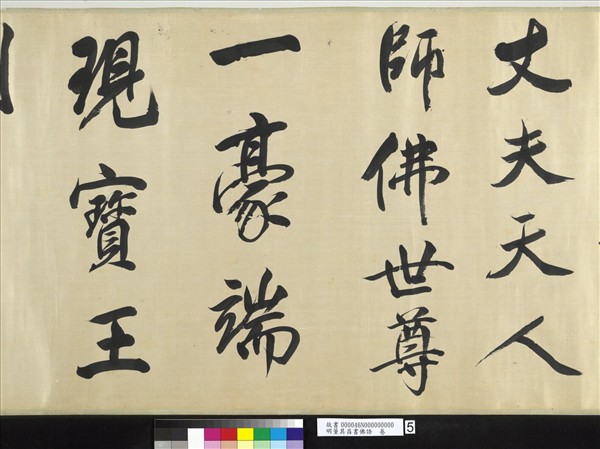 丈夫天人
師佛世尊
一豪端
現寶王
故書 000046N000000000
明董其昌書佛語 卷
5